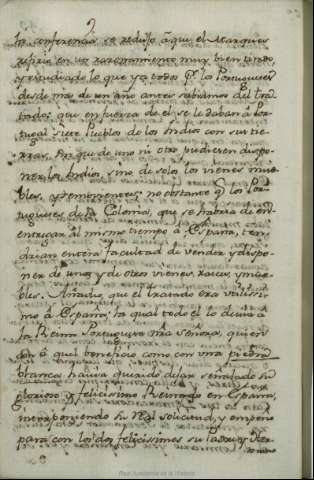 2
la conferencia se redujo à que el Marques
repitiò en un razonamiento muy bien
y estudiado lo que ya todos los Portugueses
desde mas de un año antes sabiamos del tra
tado: que en fuerza de el se le daban à Por
tugal siete Pueblos de los Indios con sus tie
rras, sin que de uno ni otro pudiesen dispo
ner los Indios, sino de solos los vienes mue
bles, y semovientes; no obstante q los Por
tugueses de la Colonia, que se habia de en
entregar al mismo tiempo à España, ten
drian entera facultad de vender y dispo
ner de unos y de otros vienes, raices, y mue
bles. Añadiò, que el tratado era utilissi
mo à España; la qual todo el lo devia à
la Reina nuestra señora, quien
con el qual beneficio como con una piedra
blanca havia querido dejar señalado su
glorioso, y felicissimo Reinado en España,
interponiendo su Rl solicitud, y empeño
para con los dos felicissimos su Padre y Her
mano
Real Academia de la Historia